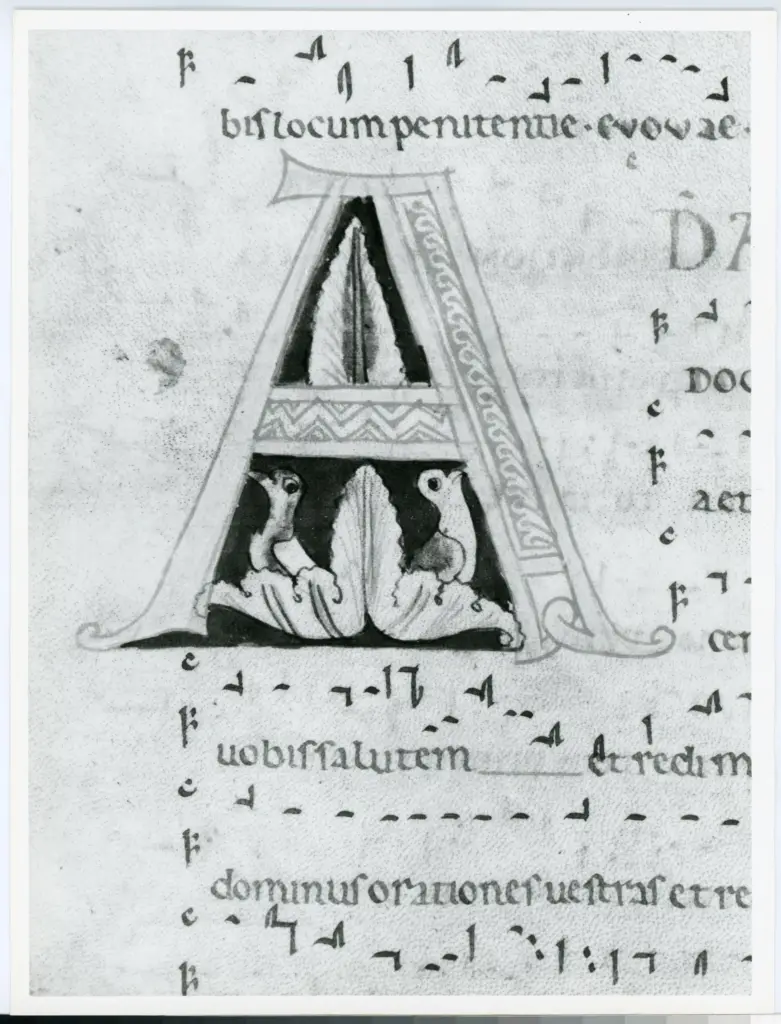 bis locum penitentie · evovae ·
A DA
DOC
aet
cer
uobis salutem et redim
dominus orationes uestras et re